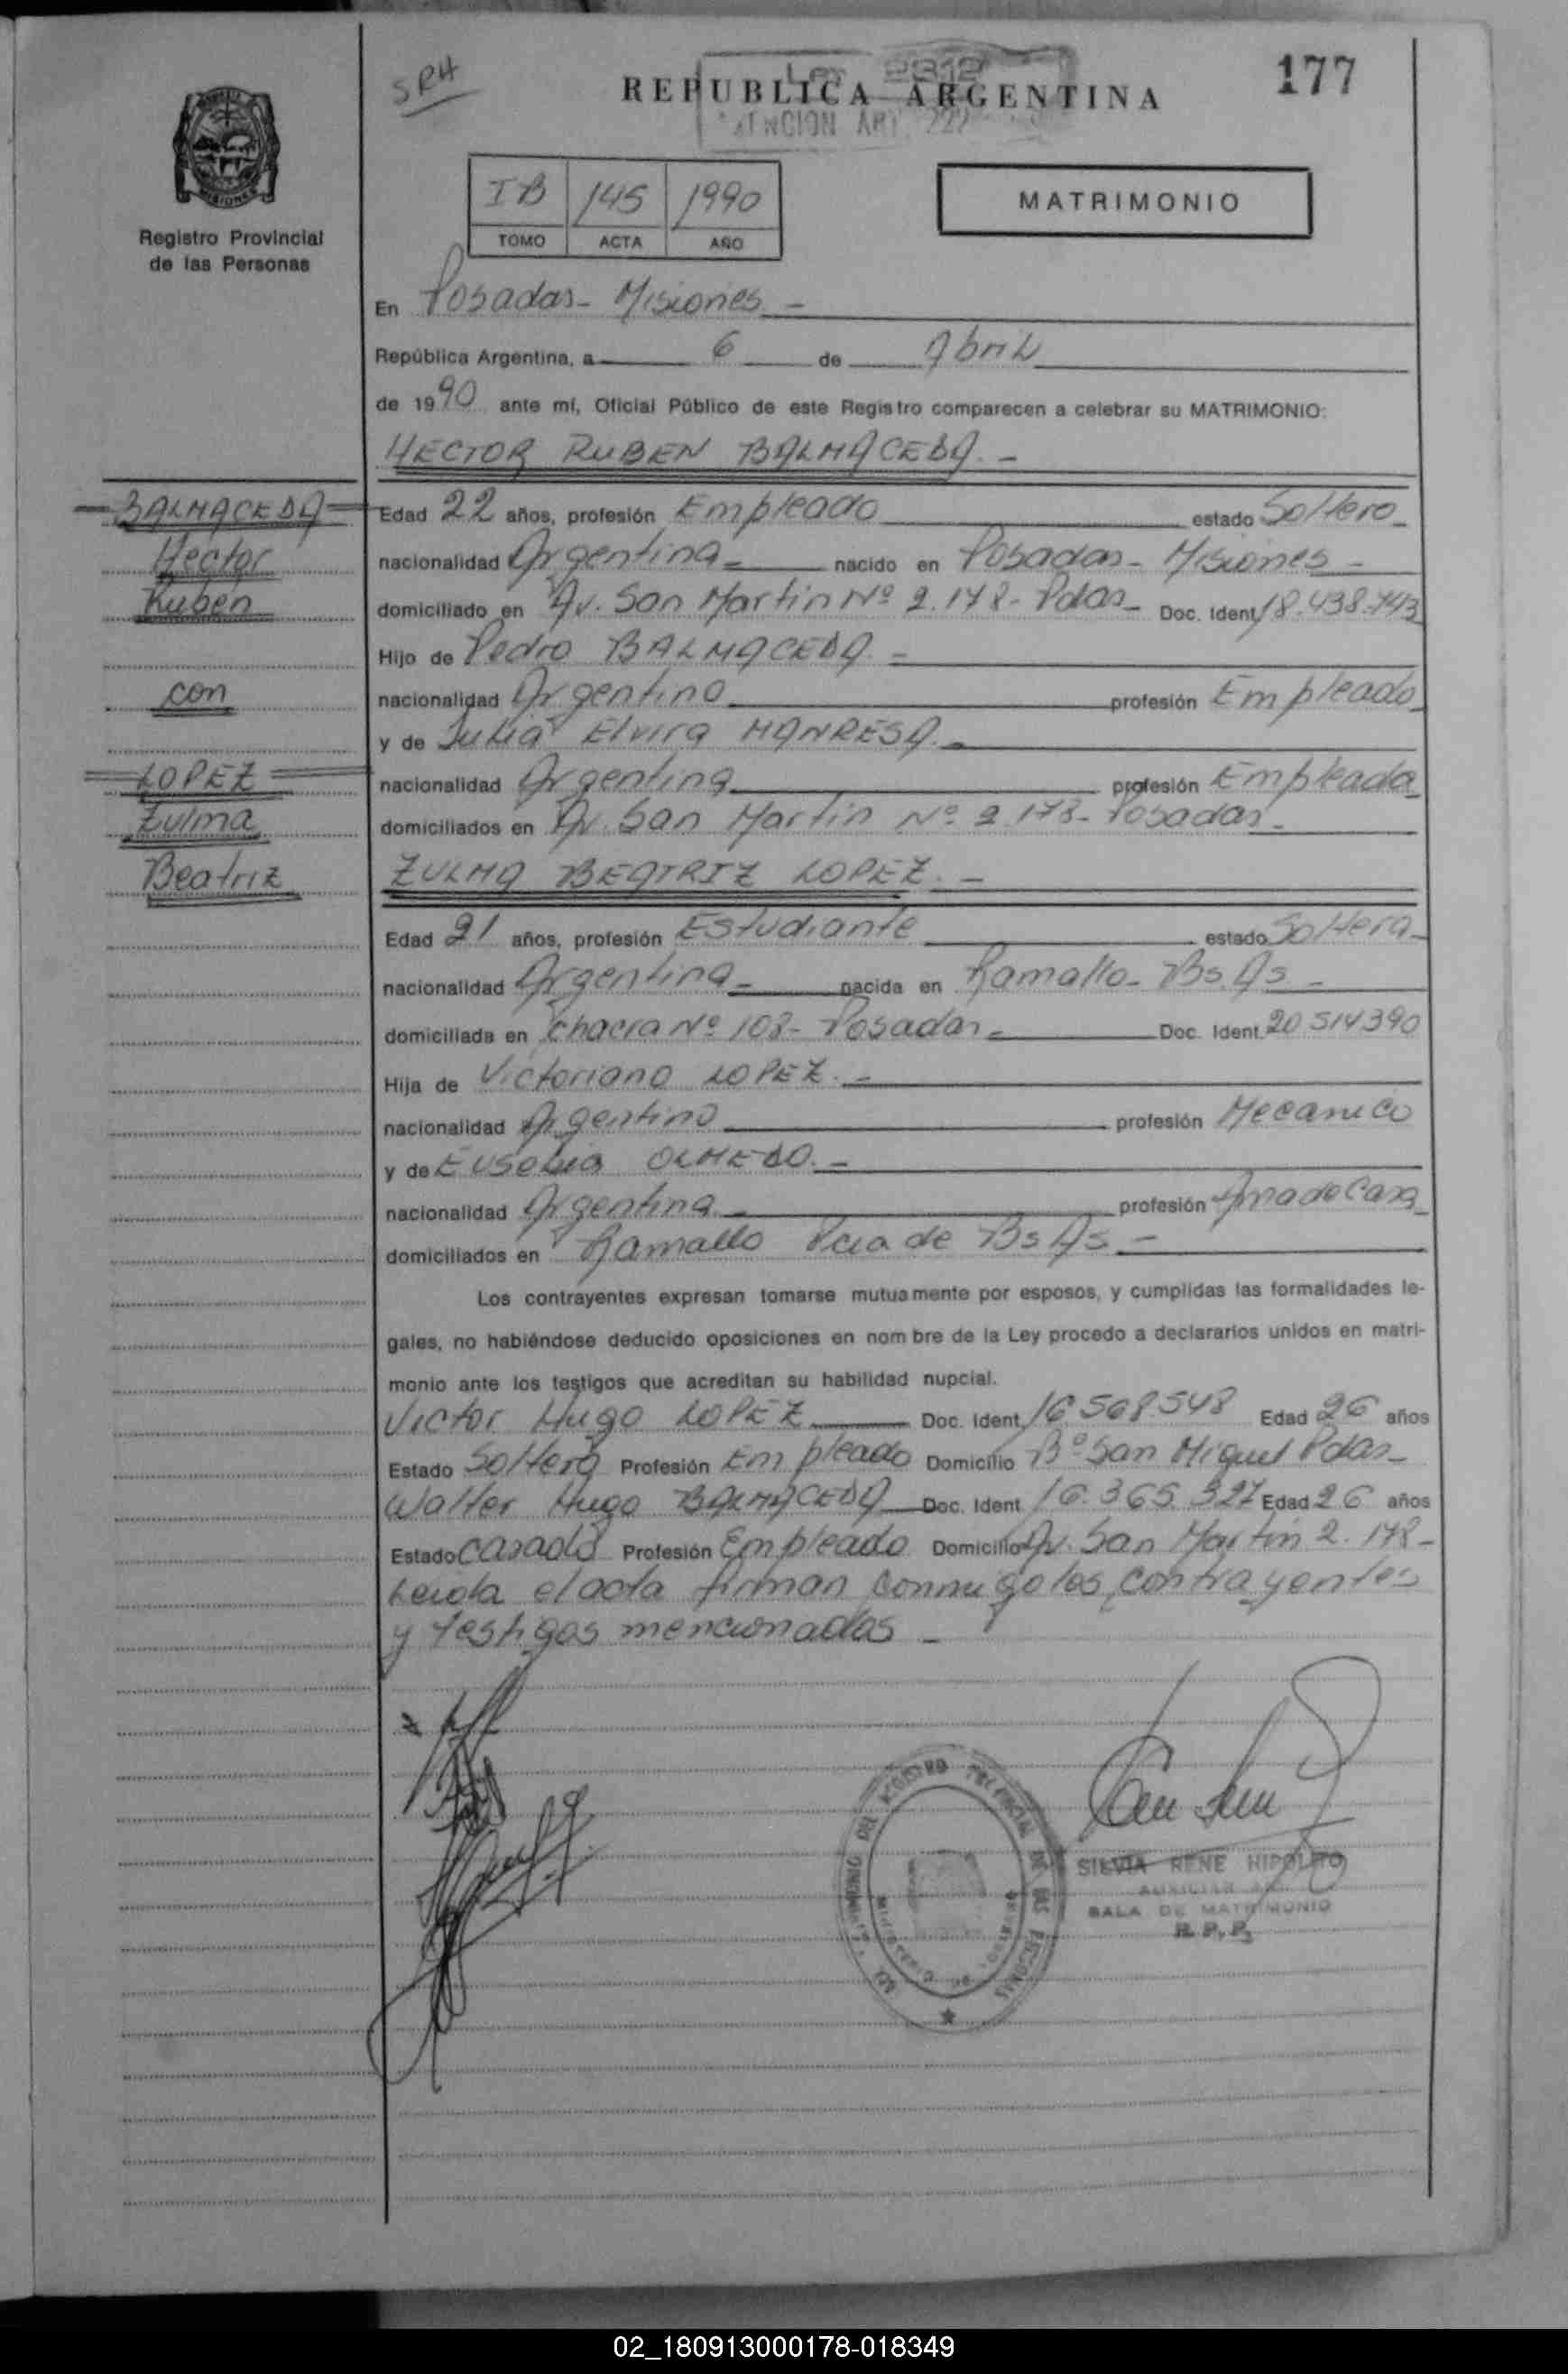 SRH
Ley 2312
177
REPUBLICA ARGENTINA
ATENCION ART. 222
MISIONES
Registro Provincial
de las Personas
IB 145 1990
TOMO ACTA AÑO
MATRIMONIO
En Posadas - Misiones -
República Argentina, a 6 de Abril
de 1990 ante mí, Oficial Público de este Registro comparecen a celebrar su MATRIMONIO:
HECTOR RUBEN BALMACEDA. -
BALMACEDA
Hector
Ruben
con
LOPEZ
Zulma
Beatriz
Edad 22 años, profesión Empleado estado Soltero -
nacionalidad Argentina - nacido en Posadas - Misiones -
domiciliado en Av. San Martin Nº 2.178 - Pdas - Doc. Ident. 18.438.743
Hijo de Pedro BALMACEDA. -
nacionalidad Argentino profesión Empleado
y de Julia Elvira MANRESA. -
nacionalidad Argentina profesión Empleada
domiciliados en Av. San Martin Nº 2.178 - Posadas -
ZULMA BEATRIZ LOPEZ. -
Edad 21 años, profesión Estudiante estado Soltera -
nacionalidad Argentina - nacida en Ramallo - Bs. As. -
domiciliada en Chacra Nº 108 - Posadas - Doc. Ident. 20514390
Hija de Victoriano LOPEZ. -
nacionalidad Argentino profesión Mecanico
y de Eusebia OLMEDO. -
nacionalidad Argentina - profesión Ama de Casa
domiciliados en Ramallo Pcia de Bs As -
Los contrayentes expresan tomarse mutuamente por esposos, y cumplidas las formalidades le-
gales, no habiéndose deducido oposiciones en nombre de la Ley procedo a declararlos unidos en matri-
monio ante los testigos que acreditan su habilidad nupcial.
Victor Hugo LOPEZ Doc. Ident. 16.568.548 Edad 26 años
Estado Soltero Profesión Empleado Domicilio Bº San Miguel Pdas -
Walter Hugo BALMACEDA Doc. Ident. 16.365.327 Edad 26 años
Estado casado Profesión Empleado Domicilio Av. San Martin 2.178 -
Leida el acta firman conmigo los contrayentes
y testigos mencionados -
SILVIA RENE HIPOLITO
AUXILIAR
SALA DE MATRIMONIO
R. P. P.
02_180913000178-018349